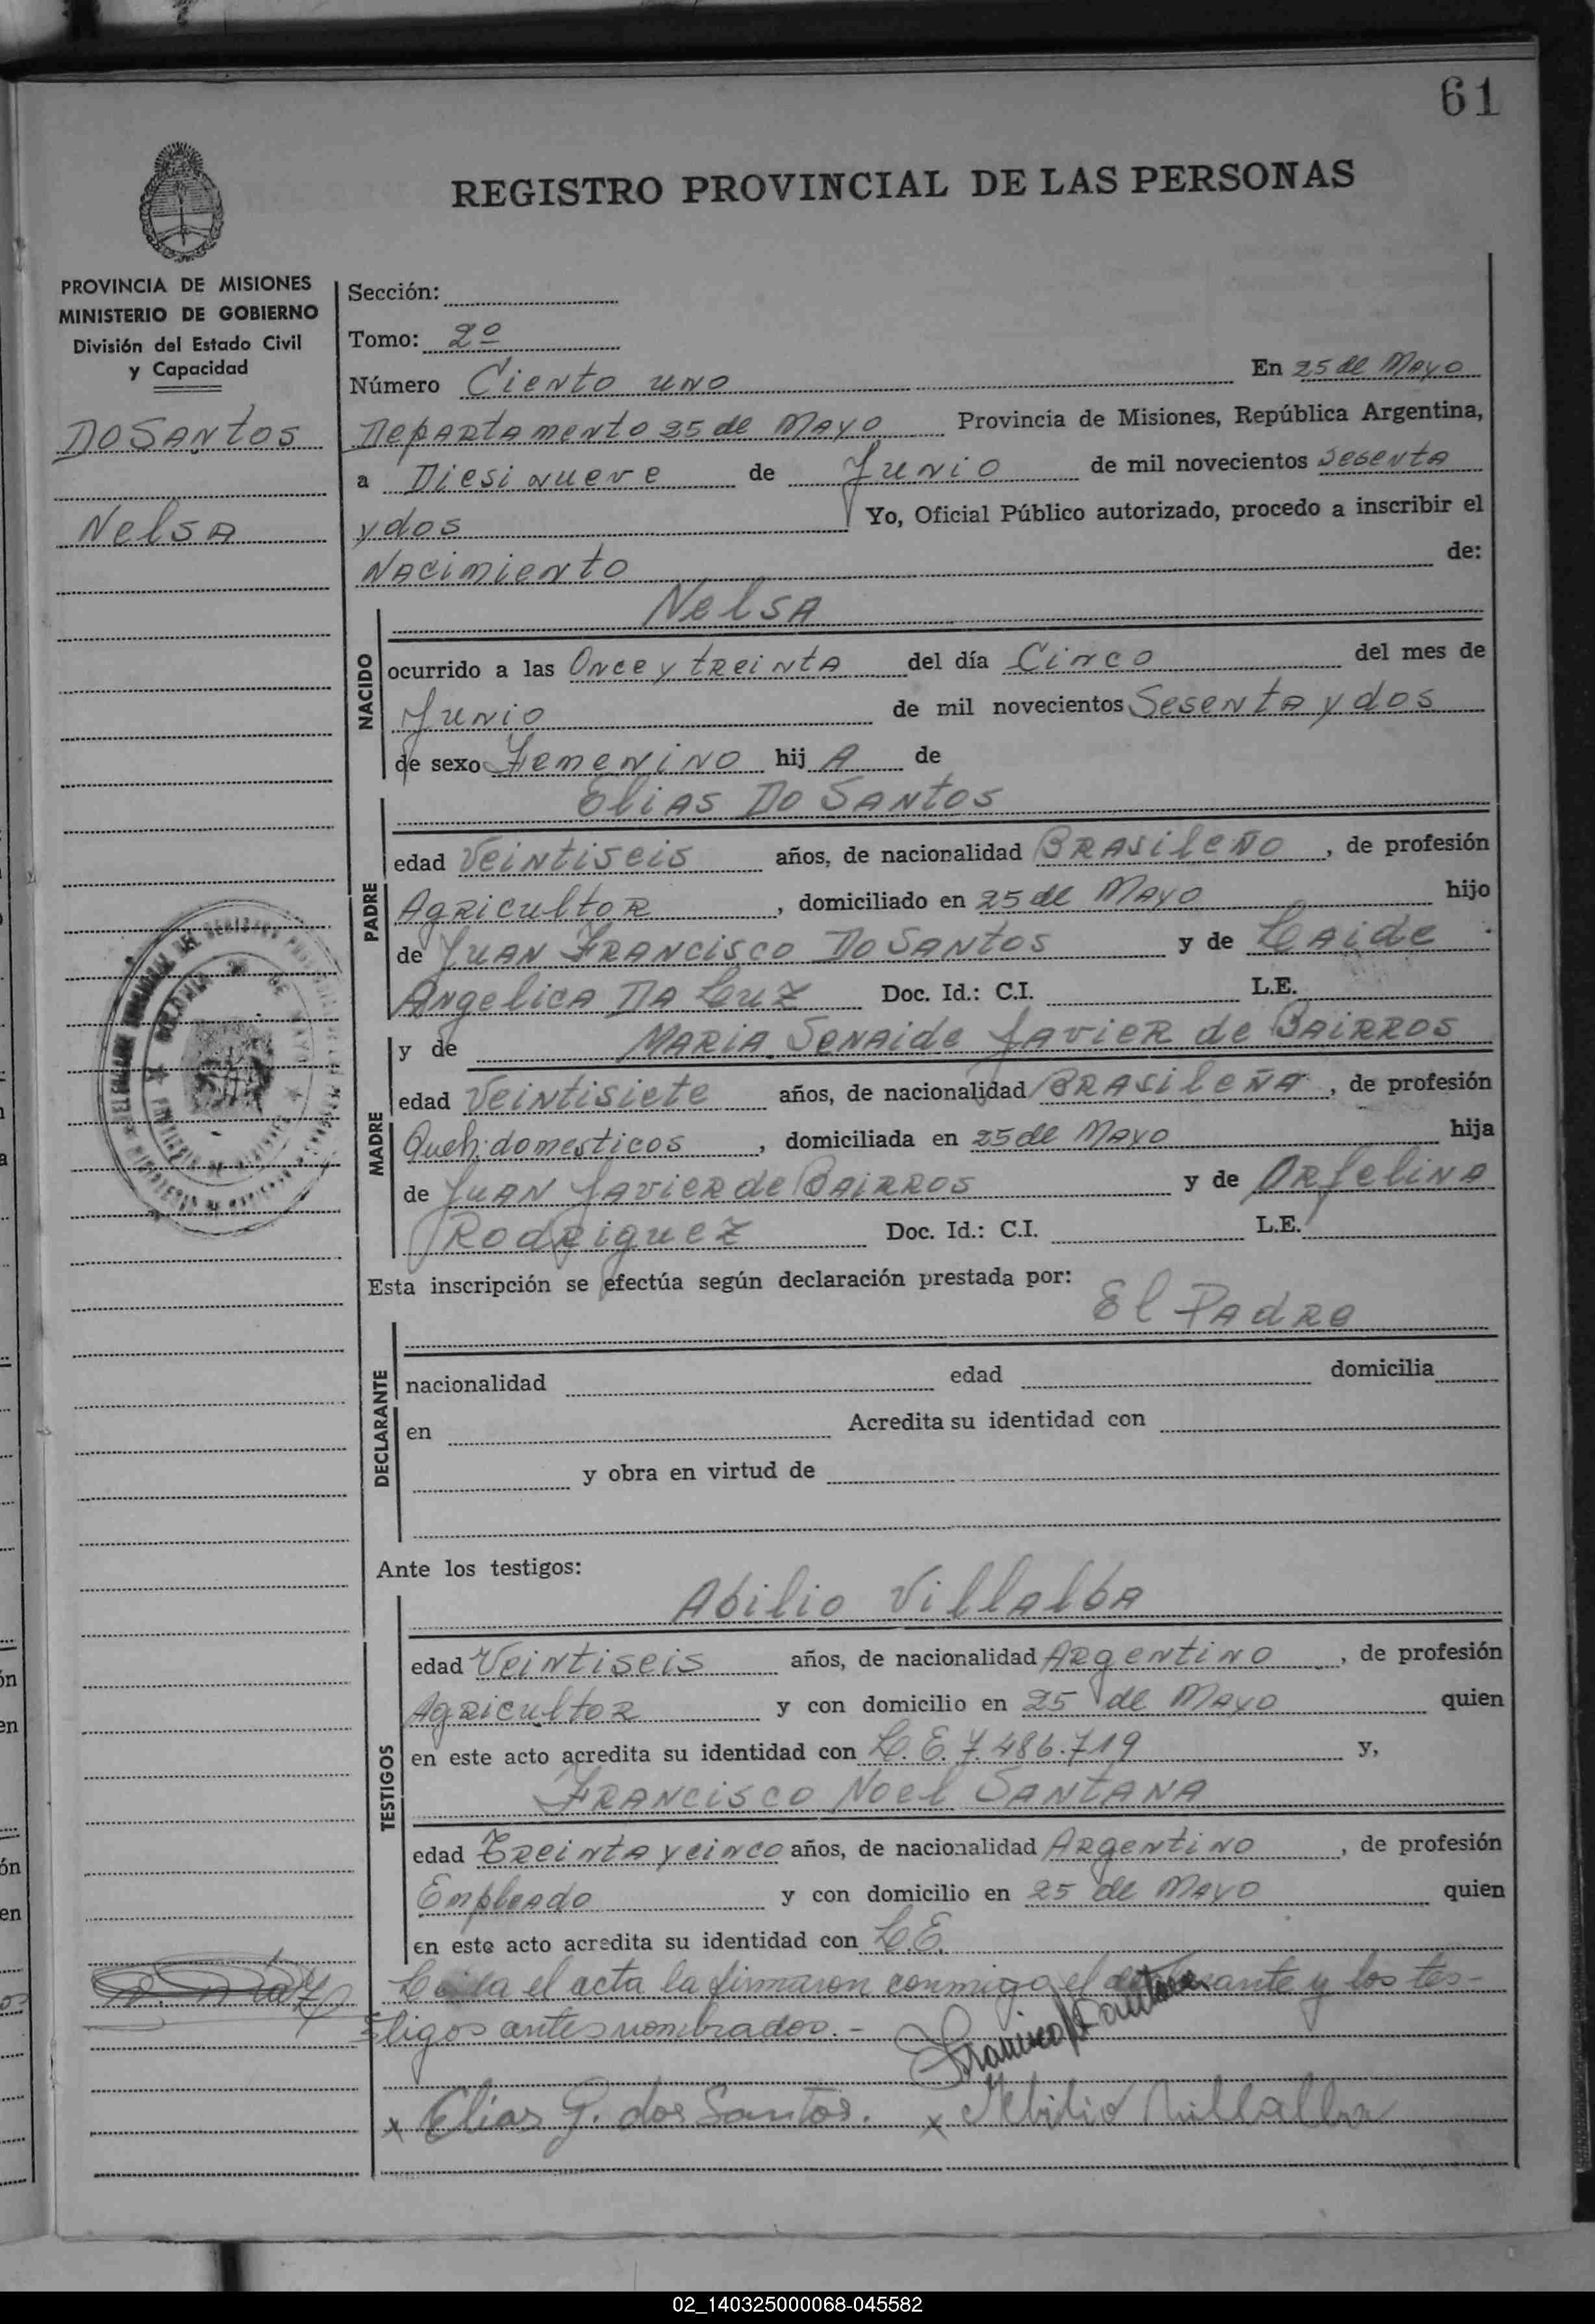 61
REGISTRO PROVINCIAL DE LAS PERSONAS
PROVINCIA DE MISIONES
MINISTERIO DE GOBIERNO
División del Estado Civil
y Capacidad
DO SANtos
NelsA
Sección:
Tomo: 2º
Número Ciento uno En 25 de Mayo
Departamento 25 de Mayo Provincia de Misiones, República Argentina,
a Diesinueve de Junio de mil novecientos sesenta
y dos Yo, Oficial Público autorizado, procedo a inscribir el
Nacimiento de:
NelsA
NACIDO
ocurrido a las Once y treinta del día Cinco del mes de
Junio de mil novecientos Sesenta y dos
de sexo Femenino hij A de
Elias Do Santos
PADRE
edad Veintiseis años, de nacionalidad Brasileño, de profesión
Agricultor, domiciliado en 25 de Mayo hijo
de Juan Francisco Do Santos y de Laide
Angelica Da Luz Doc. Id.: C.I. L.E.
y de Maria Senaide Javier de Bairros
MADRE
edad Veintisiete años, de nacionalidad Brasileña, de profesión
Queh. domesticos, domiciliada en 25 de Mayo hija
de Juan Javier de Bairros y de Orfelina
Rodriguez Doc. Id.: C.I. L.E.
Esta inscripción se efectúa según declaración prestada por:
El Padre
DECLARANTE
nacionalidad edad domicilia
en Acredita su identidad con
y obra en virtud de
Ante los testigos:
Abilio Villalba
TESTIGOS
edad Veintiseis años, de nacionalidad Argentino, de profesión
Agricultor y con domicilio en 25 de Mayo quien
en este acto acredita su identidad con L.E. 7.486.719 y,
Francisco Noel Santana
edad Treinta y cinco años, de nacionalidad Argentino, de profesión
Empleado y con domicilio en 25 de Mayo quien
en este acto acredita su identidad con L.E.
el acta la firmaron conmigo el y los tes-
tigos antes nombrados.-
Francisco N Santana
x Elias G. dos Santos. x Abilio Villalba
02_140325000068-045582